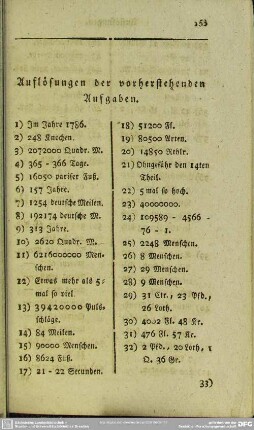 153
Auflösungen der vorherstehenden
Aufgaben.
1) Im Jahre 1786.
2) 248 Knochen.
3) 2072000 Quadr. M.
4) 365 - 366 Tage.
5) 16050 pariser Fuß.
6) 157 Jahre.
7) 1254 deutsche Meilen.
8) 192174 deutsche M.
9) 313 Jahre.
10) 2620 Quadr. M.
11) 6216000000 Men-
schen.
12) Etwas mehr als 5-
mal so viel.
13) 39420000 Puls-
schläge.
14) 84 Meilen.
15) 90000 Menschen.
16) 8624 Füß.
17) 21 - 22 Secunden.
18) 51200 Fl.
19) 80500 Arten.
20) 14850 Rthlr.
21) Ohngefähr den 14ten
Theil.
22) 5 mal so hoch.
23) 40000000.
24) 109589 - 4566 -
76 - 1.
25) 2248 Menschen.
26) 8 Menschen.
27) 29 Menschen.
28) 9 Menschen.
29) 31 Ctr., 23 Pfd.,
26 Loth.
30) 4002 Fl. 48 Kr.
31) 476 Fl. 57 Kr.
32) 2 Pfd., 20 Loth, 1
Q. 36 Gr.
33)
DFG